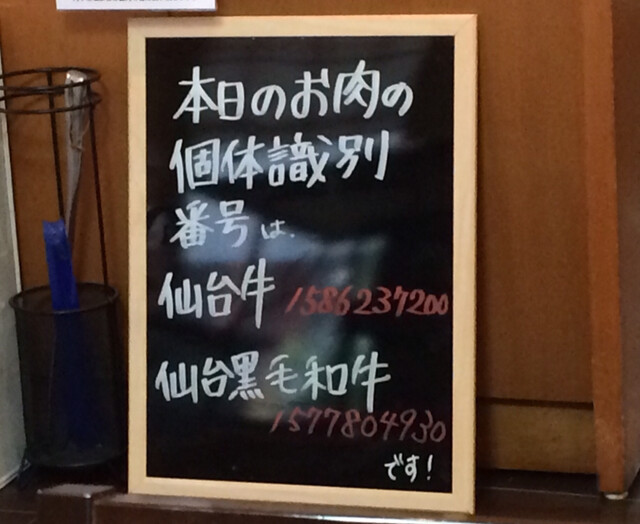 本日のお肉の
個体識別
番号は、
仙台牛 1586237200
仙台黒毛和牛
1577804930
です!